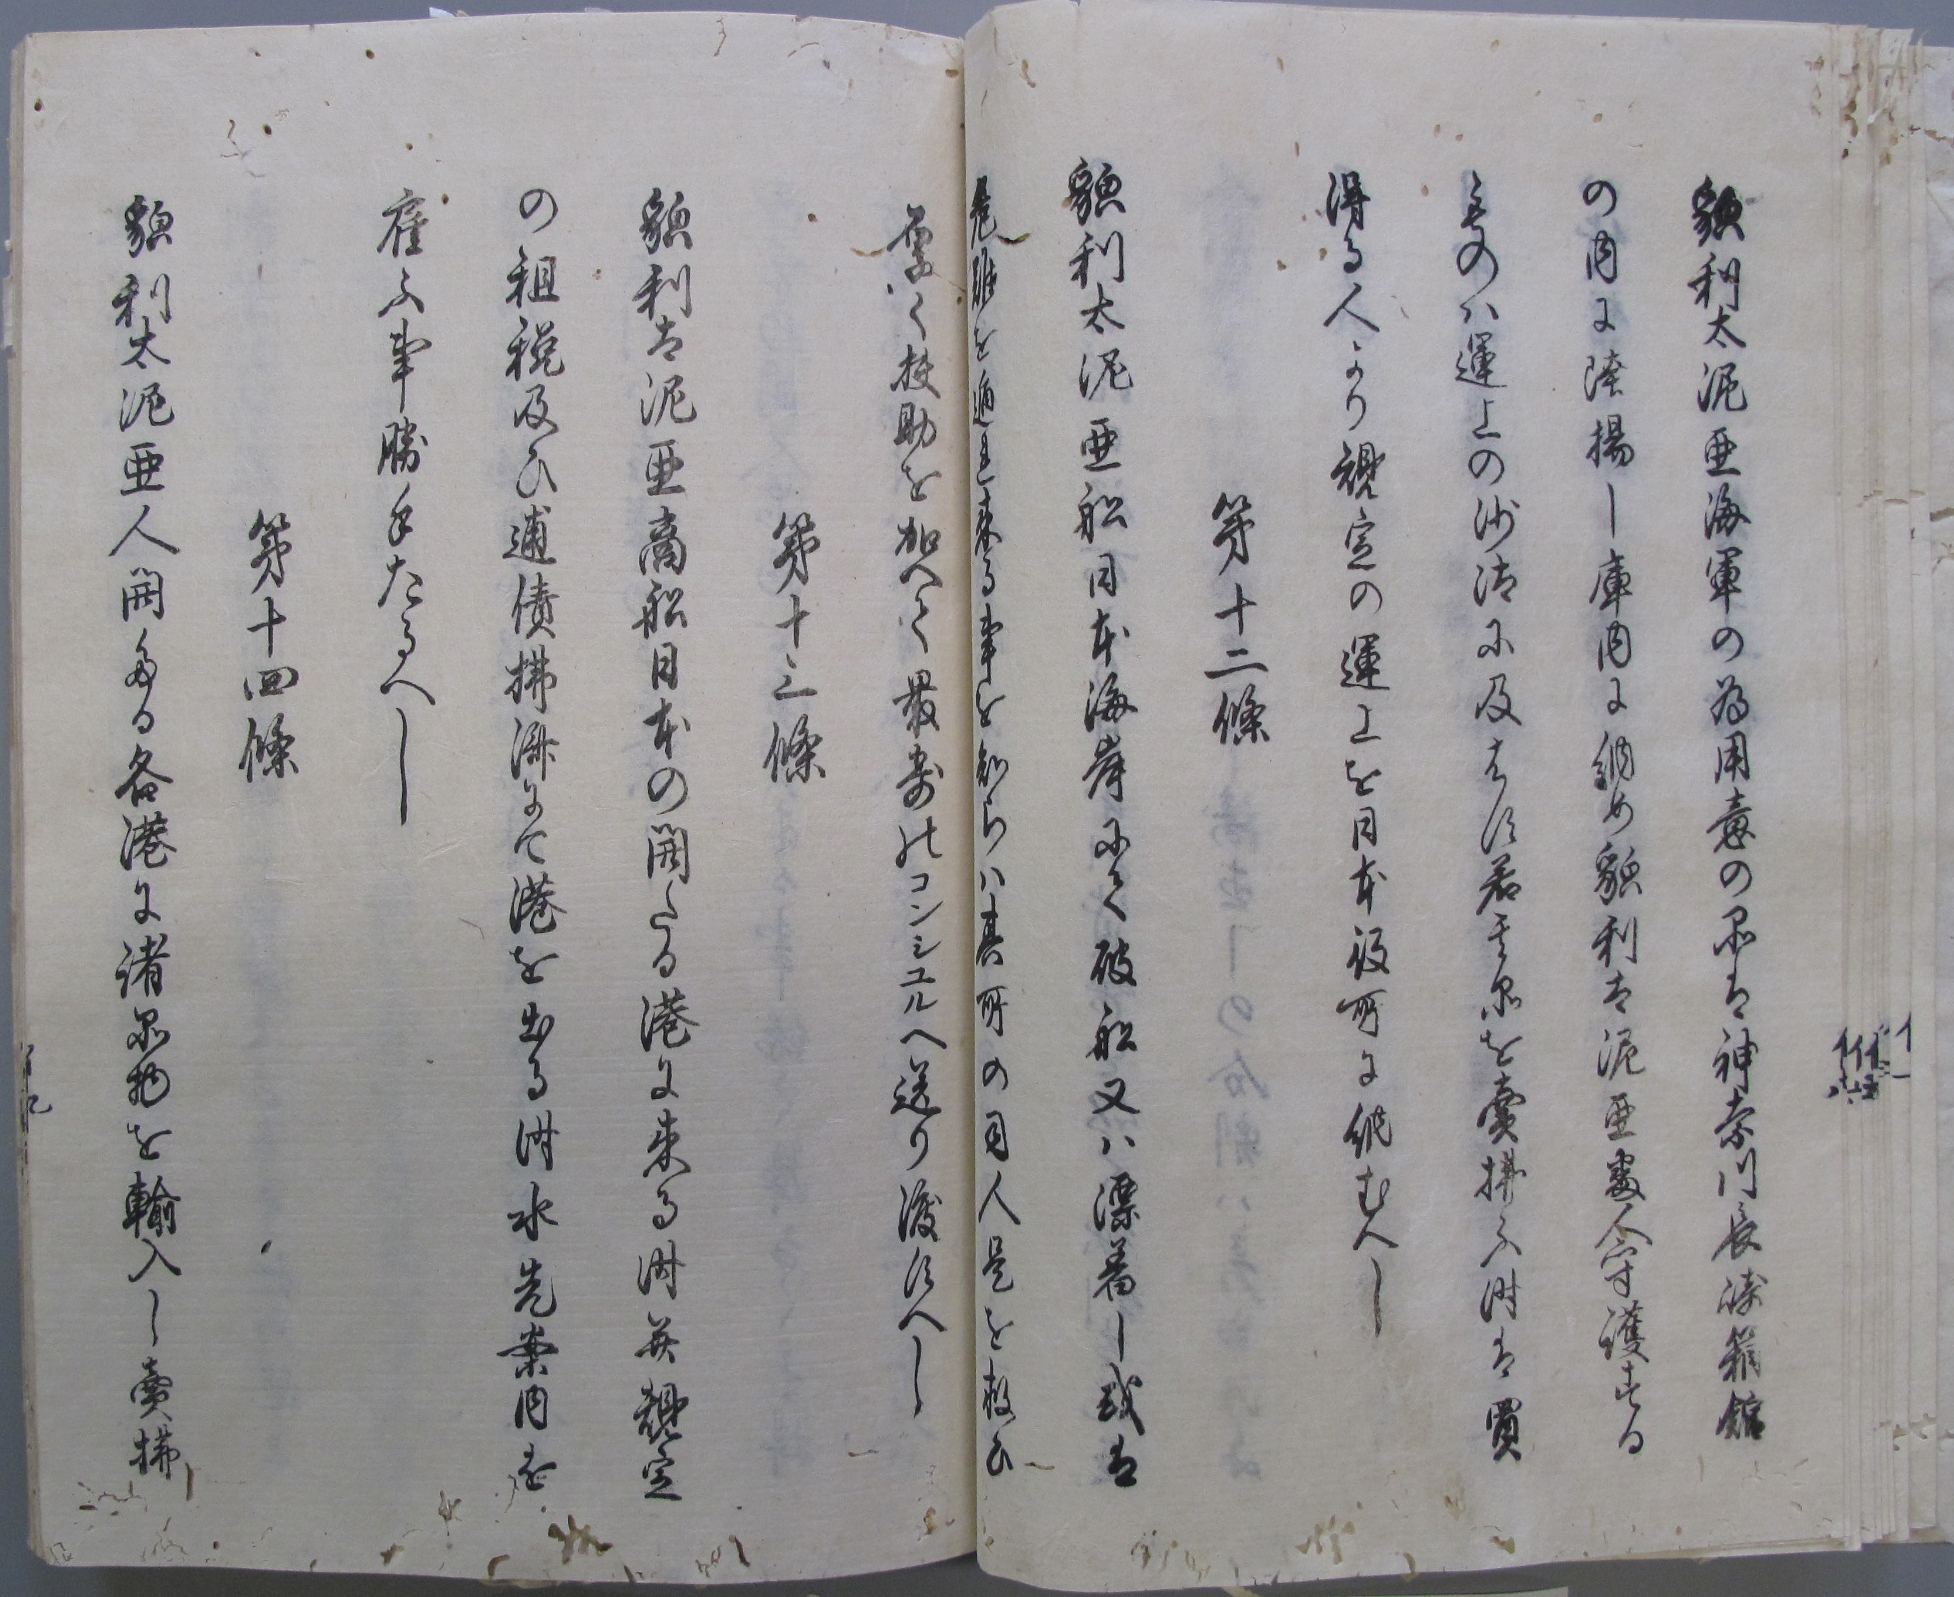 貌利太泥亜海軍の為用意の品は神奈川長崎箱館
の内に陸揚し庫内に納め貌利太泥亜番人守護する
ものハ運上の沙汰に及はす若其品を売拂ふ時は買
得る人より規定の運上を日本役所に納むへし
第十二條
貌利太泥亜船日本海岸にて破船又ハ漂着し或は
危難を遁れ来る事を知らハ其所の司人是を救ひ
厚く扶助を加へて最寄のコンシユルへ送り渡すへし
第十三條
貌利太泥亜商船日本の開たる港に来る時并規定
の租税及ひ逋債拂済にて港を出る時水先案内を
雇ふ事勝手たるへし
第十四條
貌利太泥亜人開きたる各港に諸品物を輸入し賣拂